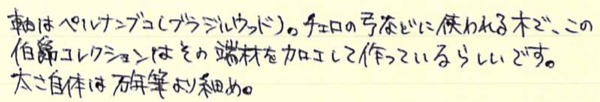 軸はペルナンブコ(ブラジルウッド)。チェロの弓などに使われる木で、この
伯爵コレクションはその端材を加工して作っているらしいです。
太さ自体は万年筆より細め。